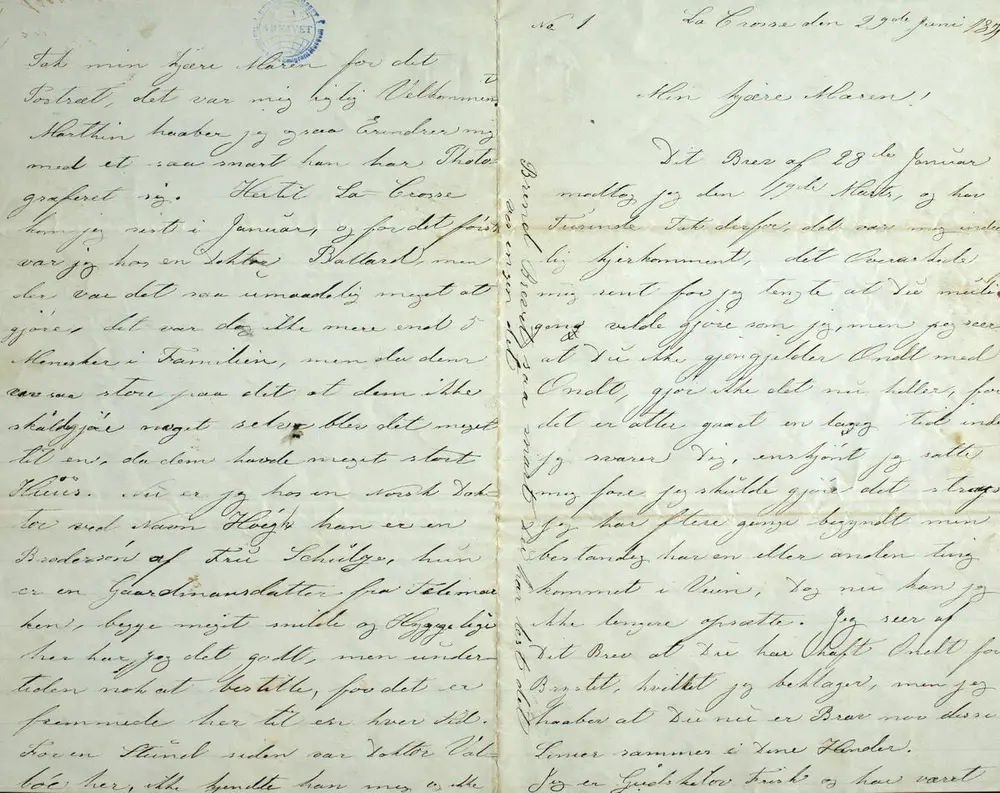 No 1 La Crosse den 29de Juni
Min kjære Maren!
Dit Brev af 28de Januar
modtog jeg den 19de Marts, og har
Tusinde Tak derfor, det var mig inder
lig kjerkomment, det Overaskede
mig sent for jeg tengte at Du
gang vilde gjøre som jeg, men jeg seer
at Du ikke gjengjelder Ondt med
Ondt, gjør ikke det nu heller, for
det er atter gaaet en lang tid inden
jeg svarer Dig, enskjønt jeg satte
mig fore jeg skulde gjøre det strags
jeg har flere gange begyndt men
bestandig har en eller anden ting
kommet i Veien, Dog nu kan jeg
ikke lengere opsætte. Jeg seer af
Dit Brev at Du har haft Ondt for
Brystet, hvilket jeg beklager, men jeg
haaber at Du nu er Brav nor disse
Linier sammer i Dine Hender.
Jeg er Gudskelov Frisk og har været
Tak min kjære Maren for det
Portræt, det var mig rigtig Velkomment
Marthin haaber jeg ogsaa Erindrer mig
med et saa snart han har Photo
graferet sig. Hertil La Crosse
kom jeg sist i Januar, og for det først
var jeg hos en Doktor Ballard, men
der var det saa umaadelig meget at
gjøre, det var dog ikke mere end 5
Mennesker i Familien, men da dem
var saa store paa det at dem ikke
skuldgjøre noget selv blev det meget
til en, da dem havde meget stort
Huus. Nu er jeg hos en Norsk Dok-
tor ved Navn Høegh han er en
Brodersøn af Fru Schulze, hun
er en Gaardmansdatter fra Telemar
ken, begge meget snilde og Hyggelige
her har jeg det godt, men under-
tiden nok at bestille, for det er
fremmede her til en hver Tid.
For en Stund siden var Doktor
her, ikke kjendte han mig og ikke
Brend Brevet saa snart Du har lest det
saa ingen